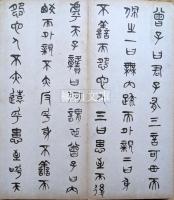 曾子曰君子有三言可毌而
佩之一曰無內疏而外親二曰身
不善而怨他人三曰患至而後
虖天子贛曰何謂也曾子曰內
疏而外親不亦反乎身不善而
怨他人不亦遠乎患至而後